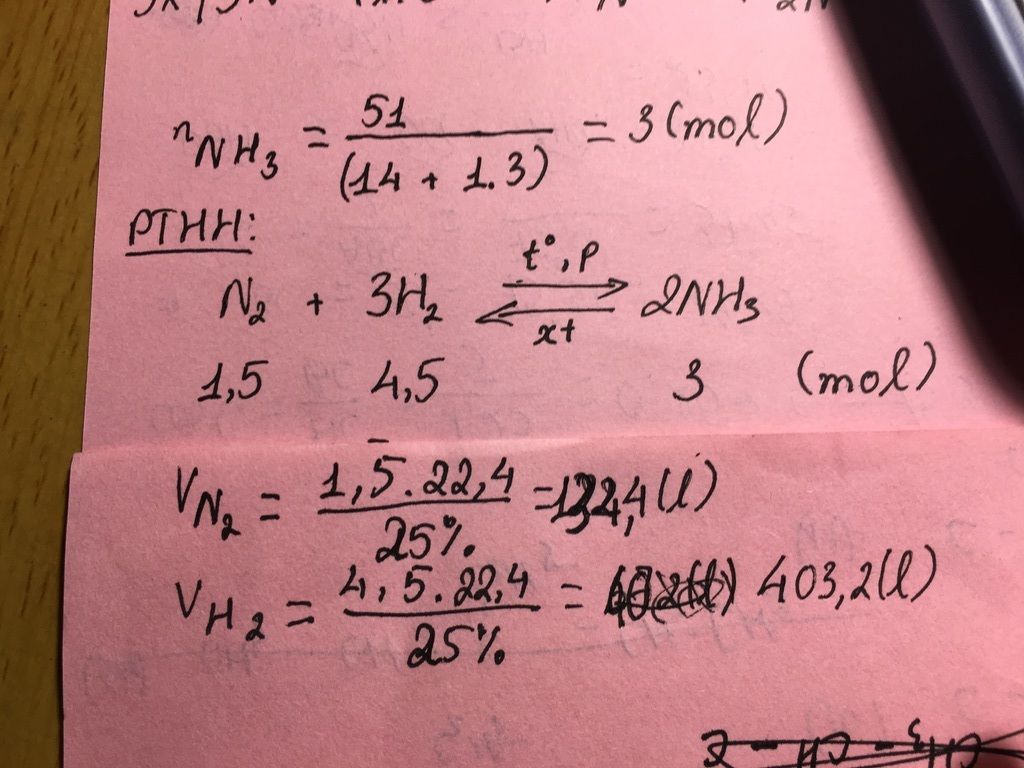 nNH3 = 51/(14 + 1.3) = 3 (mol)
PTHH:
N2 + 3H2 ⇌ 2NH3
t°, p
xt
1,5 4,5 3 (mol)
VN2 = 1,5.22,4/25% = 4(l)
VH2 = 4,5.22,4/25% = 403,2(l)